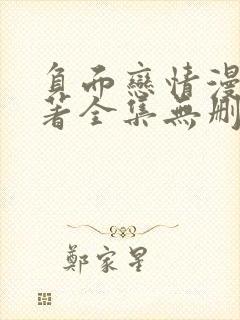 負而戀情漫
著全集無刪
鄭家星